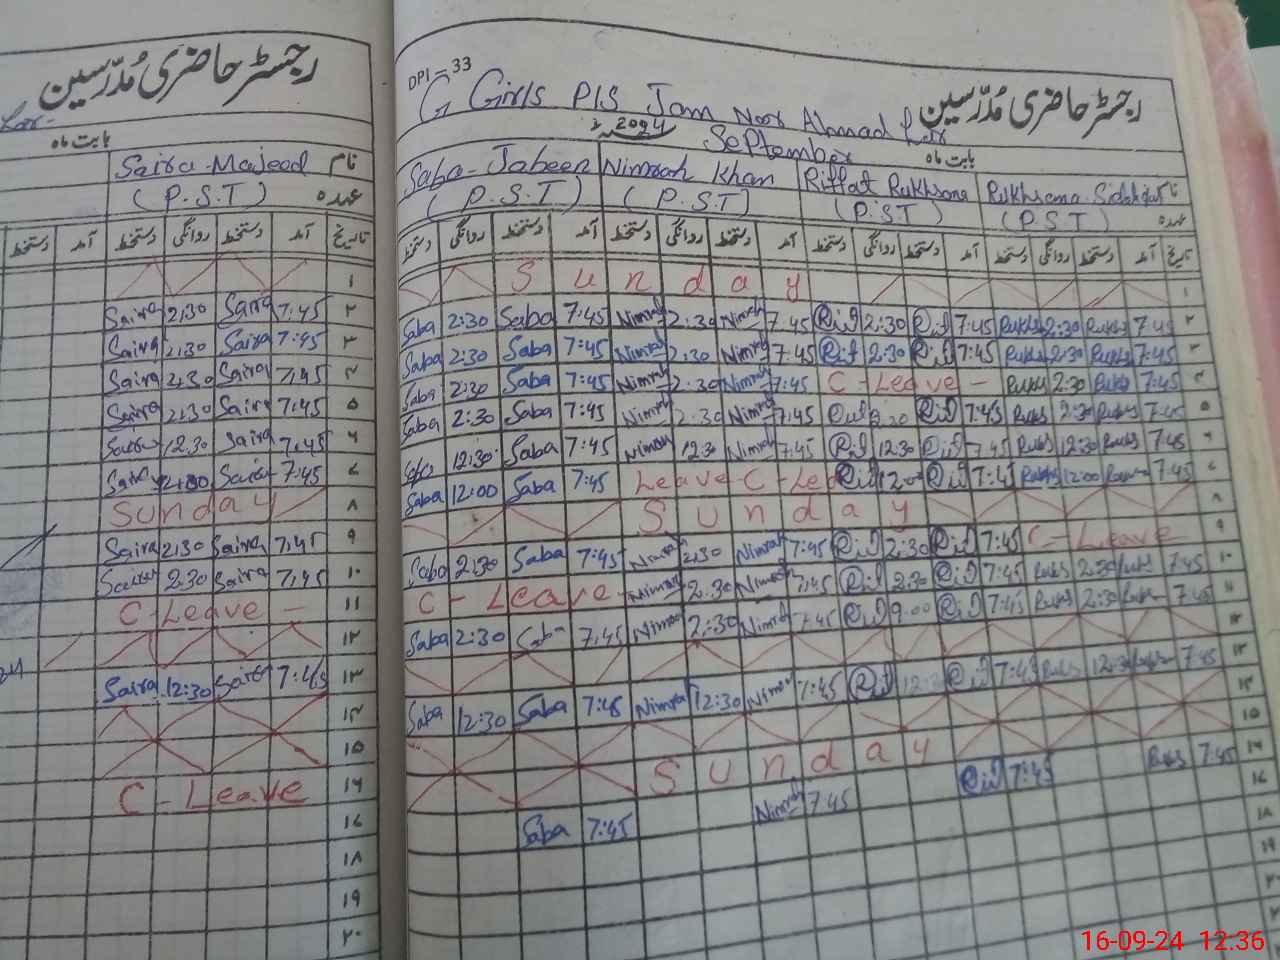 رجسٹر حاضری مُدرّسین
بابت ماہ
نام Saira-Majeed
عہدہ (P.S.T)
تاریخ آمد دستخط روانگی دستخط آمد دستخط
۱
۲ 7:45 Saira 2:30 Saira
۳ 7:45 Saira 2:30 Saira
۴ 7:45 Saira 2:30 Saira
۵ 7:45 Saira 2:30 Saira
۶ 7:45 Saira 12:30 Saira
7:45 Saira 12:00 Saira
۸ Sunday
۹ 7:45 Saira 2:30 Saira
۱۰ 7:45 Saira 2:30 Saira
۱۱ C-Leave -
۱۲
۱۳ 7:45 Saira 12:30 Saira
۱۴
۱۵
C-Leave
۱۸
۱۹
۲۰
DPI-33
G Girls P/S Jam Noor Ahmad Lar
رجسٹر حاضری مُدرّسین
2024 September بابت ماہ
Saba-Jabeen Nimrah Khan Riffat Rukhsana Rukhsana
(P.S.T) (P.S.T) (P.S.T) (P.S.T) عہدہ
دستخط روانگی دستخط آمد دستخط روانگی دستخط آمد دستخط روانگی دستخط آمد دستخط روانگی دستخط آمد تاریخ
Sunday ۱
Saba 2:30 Saba 7:45 Nimrah 2:30 Nimrah 7:45 Rif 2:30 Rif 7:45 Rukhs 2:30 Rukhs 7:45 ۲
Saba 2:30 Saba 7:45 Nimrah 2:30 Nimrah 7:45 Rif 2:30 Rif 7:45 Rukhs 2:30 Rukhs 7:45 ۳
Saba 2:30 Saba 7:45 Nimrah 2:30 Nimrah 7:45 C-Leave - Rukhs 2:30 Rukhs 7:45 ۴
Saba 2:30 Saba 7:45 Nimrah 2:30 Nimrah 7:45 Rif 7:45 Rukhs 2:30 Rukhs 7:45 ۵
12:30 Saba 7:45 Nimrah 12:30 Nimrah 7:45 Rif 12:30 Rif 7:45 Rukhs 12:30 Rukhs 7:45 ۶
Saba 12:00 Saba 7:45 Leave C-Le Rif 12:00 Rif 7:45 Rukhs 12:00 7:45
Sunday
Saba 2:30 Saba 7:45 Nimrah 2:30 Nimrah 7:45 Rif 2:30 Rif 7:45 C-Leave ۹
C-Leave - Nimrah 2:30 Nimrah 7:45 Rif 2:30 Rif 7:45 Rukhs 2:30 Rukhs 7:45 ۱۰
Saba 2:30 Saba 7:45 Nimrah 2:30 Nimrah 7:45 Rif 9:00 Rif 7:45 Rukhs 2:30 Rukhs 7:45 ۱۱
۱۲
Saba 12:30 Saba 7:45 Nimrah 12:30 Nimrah 7:45 Rif 12:30 Rif 7:45 Rukhs 12:30 Rukhs 7:45 ۱۳
Sunday ۱۵
Saba 7:45 Nimrah 7:45 Rif 7:45 Rukhs 7:45
۱۸
۱۹
16-09-24 12:36